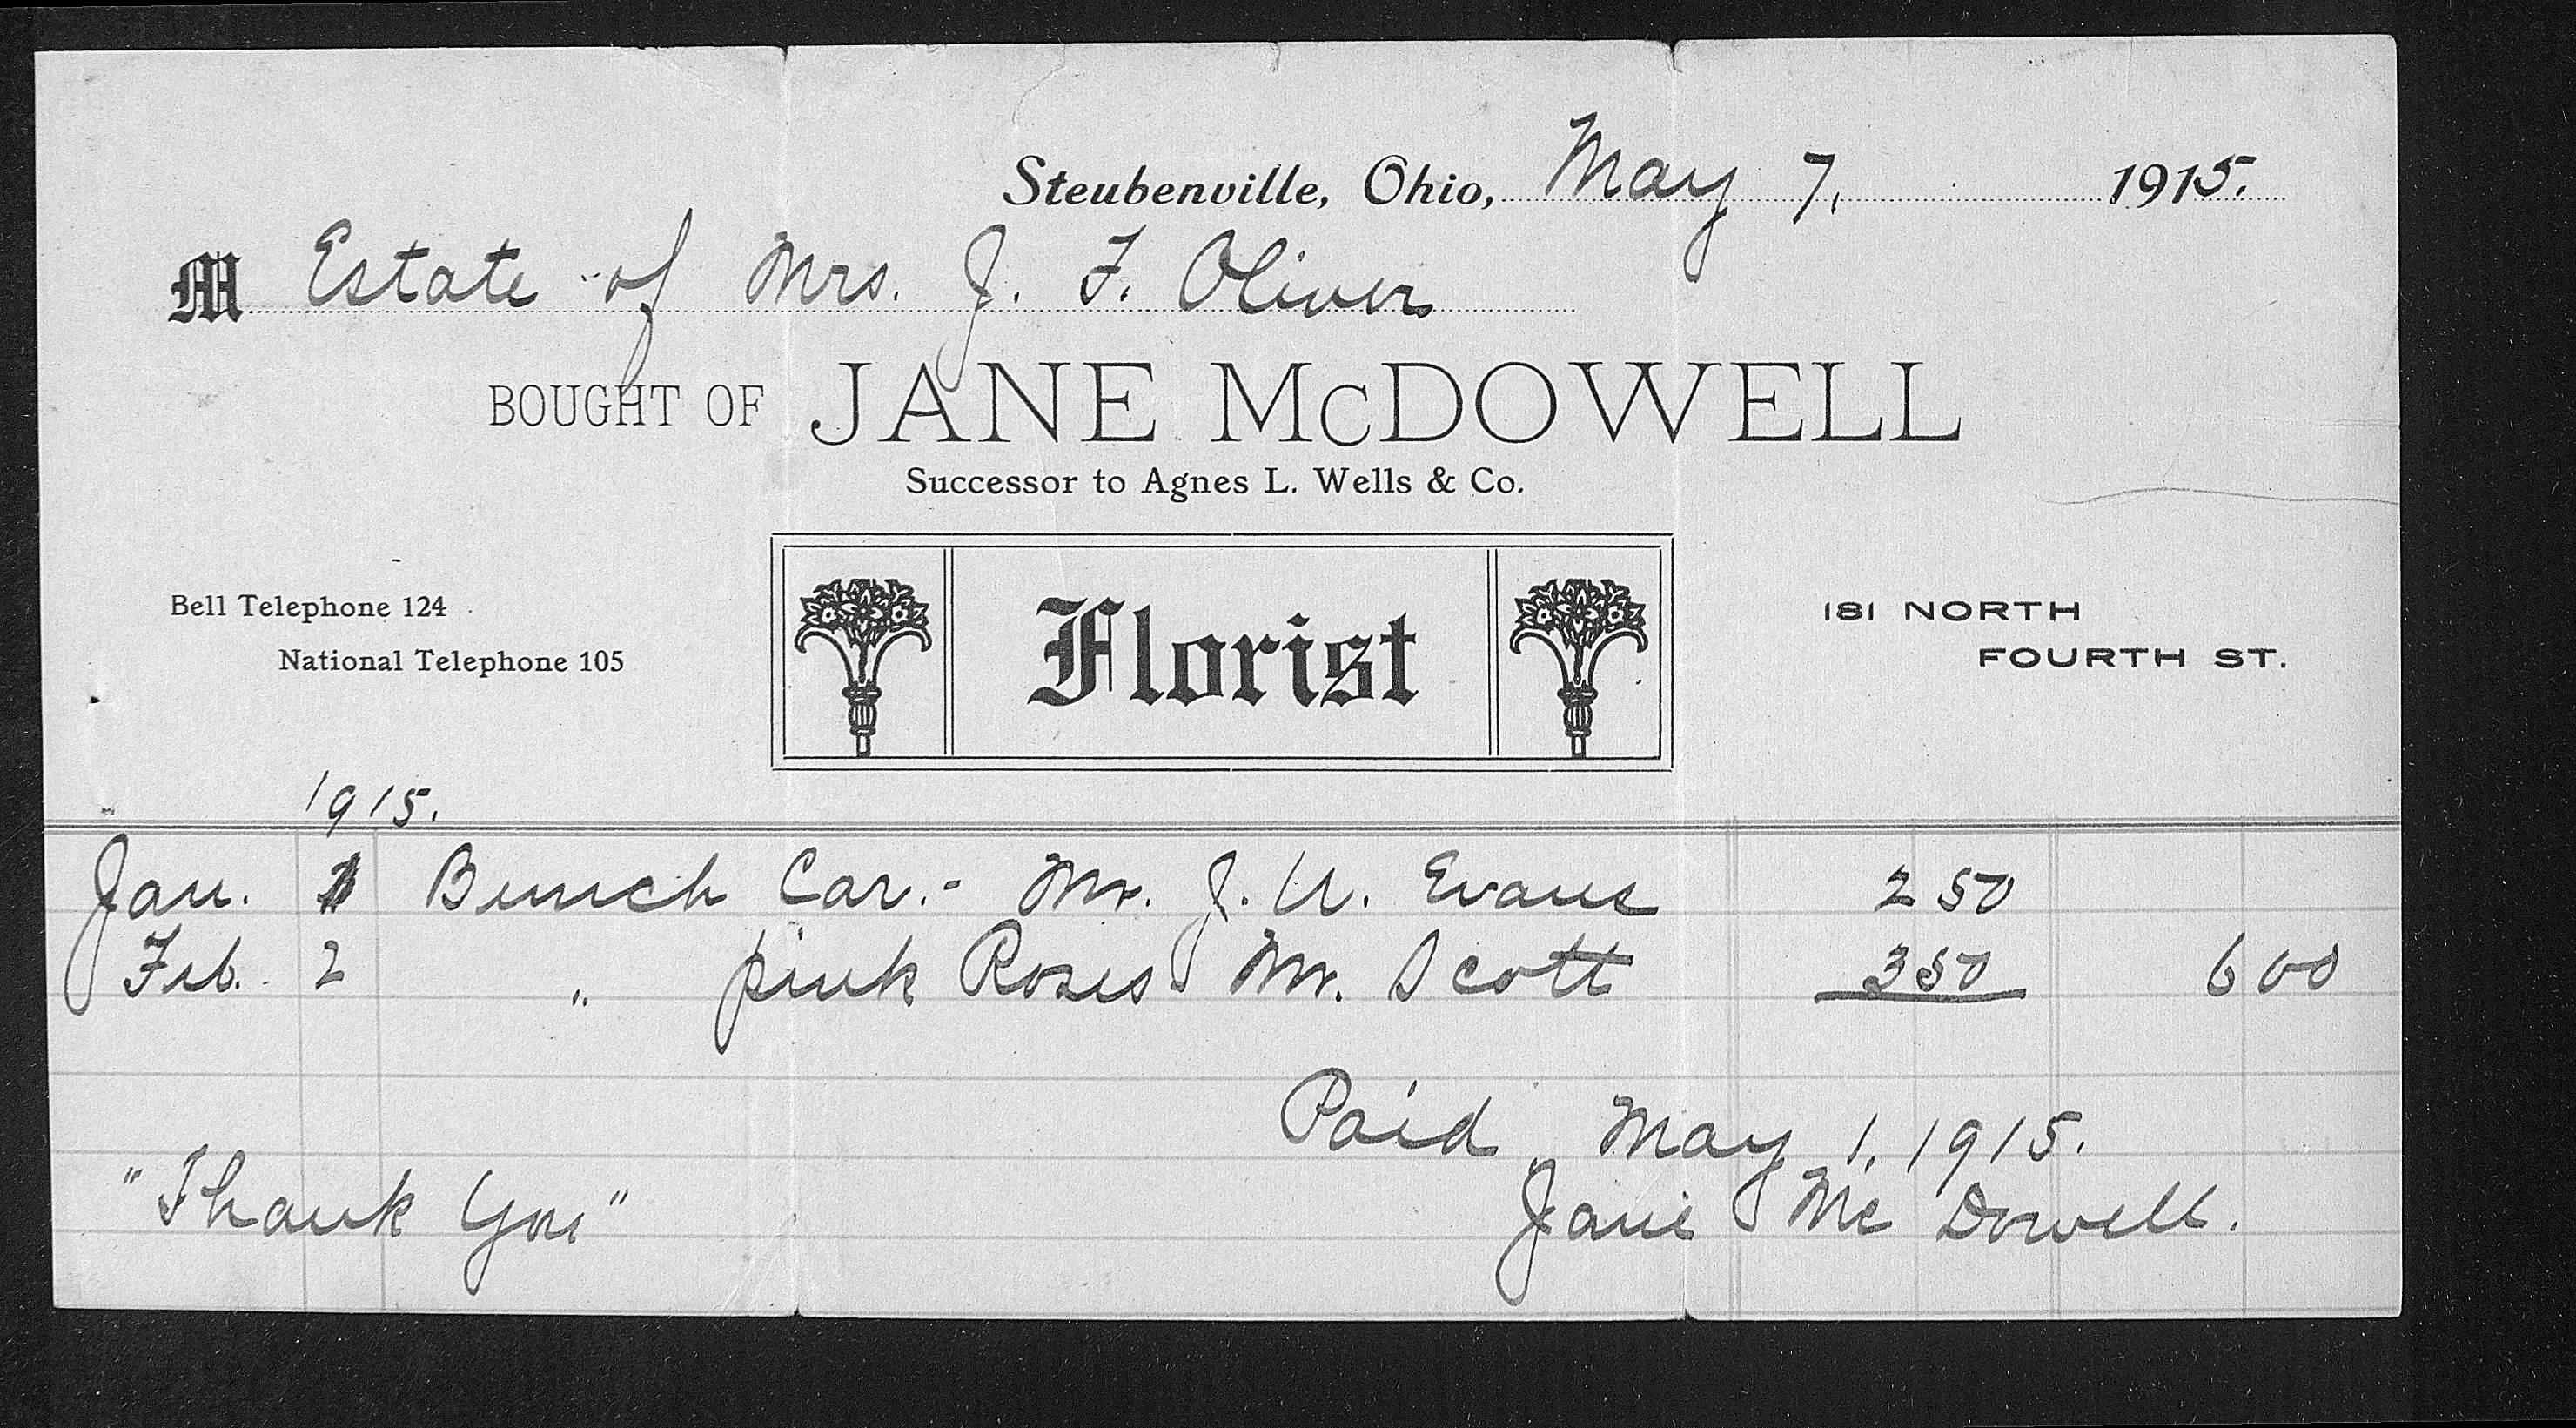 Steubenville, Ohio, May 7, 1915.
M Estate of Mrs. J. F. Oliver
BOUGHT OF JANE McDOWELL
Successor to Agnes L. Wells & Co.
Bell Telephone 124
National Telephone 105
Florist
181 NORTH
FOURTH ST.
1915.
Jan. Bunch Car. - Mr. J. W. Evans 2 50
Feb. 2 " pink Roses Mr. Scott 3 50 6 00
Paid May 1, 1915.
"Thank You" Jane McDowell.